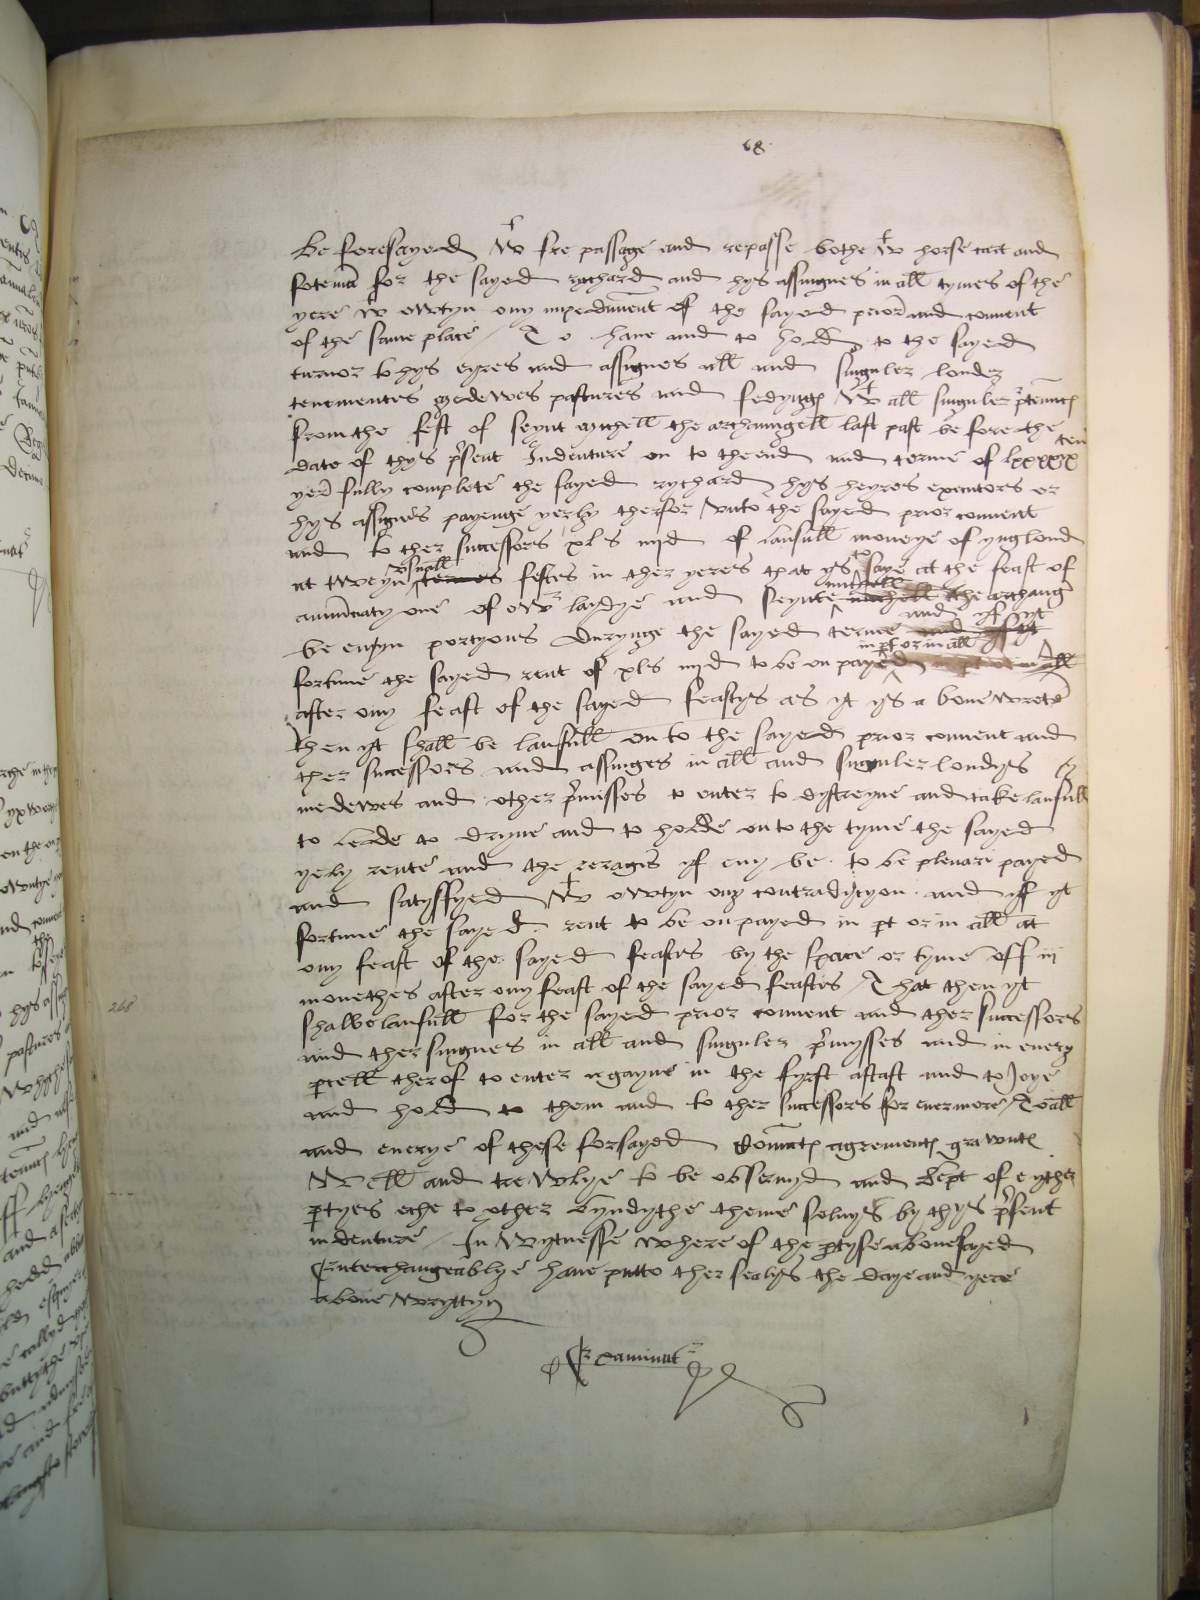 68
be foresayed Wt fre passage and repasse bothe Wt horse cart and
fotemā for the sayed rychard and hys assingnes in all tymes of the
yere w owtyn ony impedimēt of the sayed prior and couent
of the same place / To haue and to hold to the sayed
to hys eyres and assignes all and singuler londez
tenementes medewes pastures and fedyngꝭ Wt all singuler ptenncꝭ
From the fest of seynt mychell the archaungell last past be fore the
date of thys psent Indenture on to the end and terme of lxxxxix
yers fully complete the sayed rychard hys heyres executors or
hys assignes payenge yerly therfor vnto the sayed prior couent
and to ther successors xls iiijd of laufull moneye of ynglond
at tweyn vsuall termes festes in ther yeres that ys to saye at the feast of
annūciatyone of owr ladye and seynte michell the archangell
be euyn portyons durynge the sayed terme and yf yt
fortune the sayed rent of xls iiijd to be on payed in pt or in all
after ony feast of the sayed feastys as yt ys a boue wrete
then yt shall be laufull on to the sayed prior couent and
ther successors and assinges in all and singuler londys
medewes and other pmisses to enter to dystreyne and take laufull
to leade to dryue and to holde onto the tyme the sayed
yely rente and the reragis yf eny be to be plenari payed
and satysfyed Wt owtyn ony contradictyon and yff yt
fortune the sayed rent to be on payed in pt or in all at
ony feast of the sayed feastes by the space or tyme off iij
monethes after ony feast of the sayed feastes / That then yt
shalbe laufull for the sayed prior couent and ther successors
and ther singnes in all and singuler pmysses and in euery
pcell therof to enter agayne in the fyrst astast and to Joye
and hold to them and to ther successors for euermore / To all
and euerye of these forsayed couenātꝭ agrementꝭ grawntꝭ
Well and trewlye to be obseruyd and kept of eyther
ptyes eche to other byndythe theme seluys by thys psent
indenture / In Wytnesse where of the ptyse aboue sayed
Enterchangeablye haue putto ther sealys the daye and yere
aboue Wryttyn
Examinatr
268